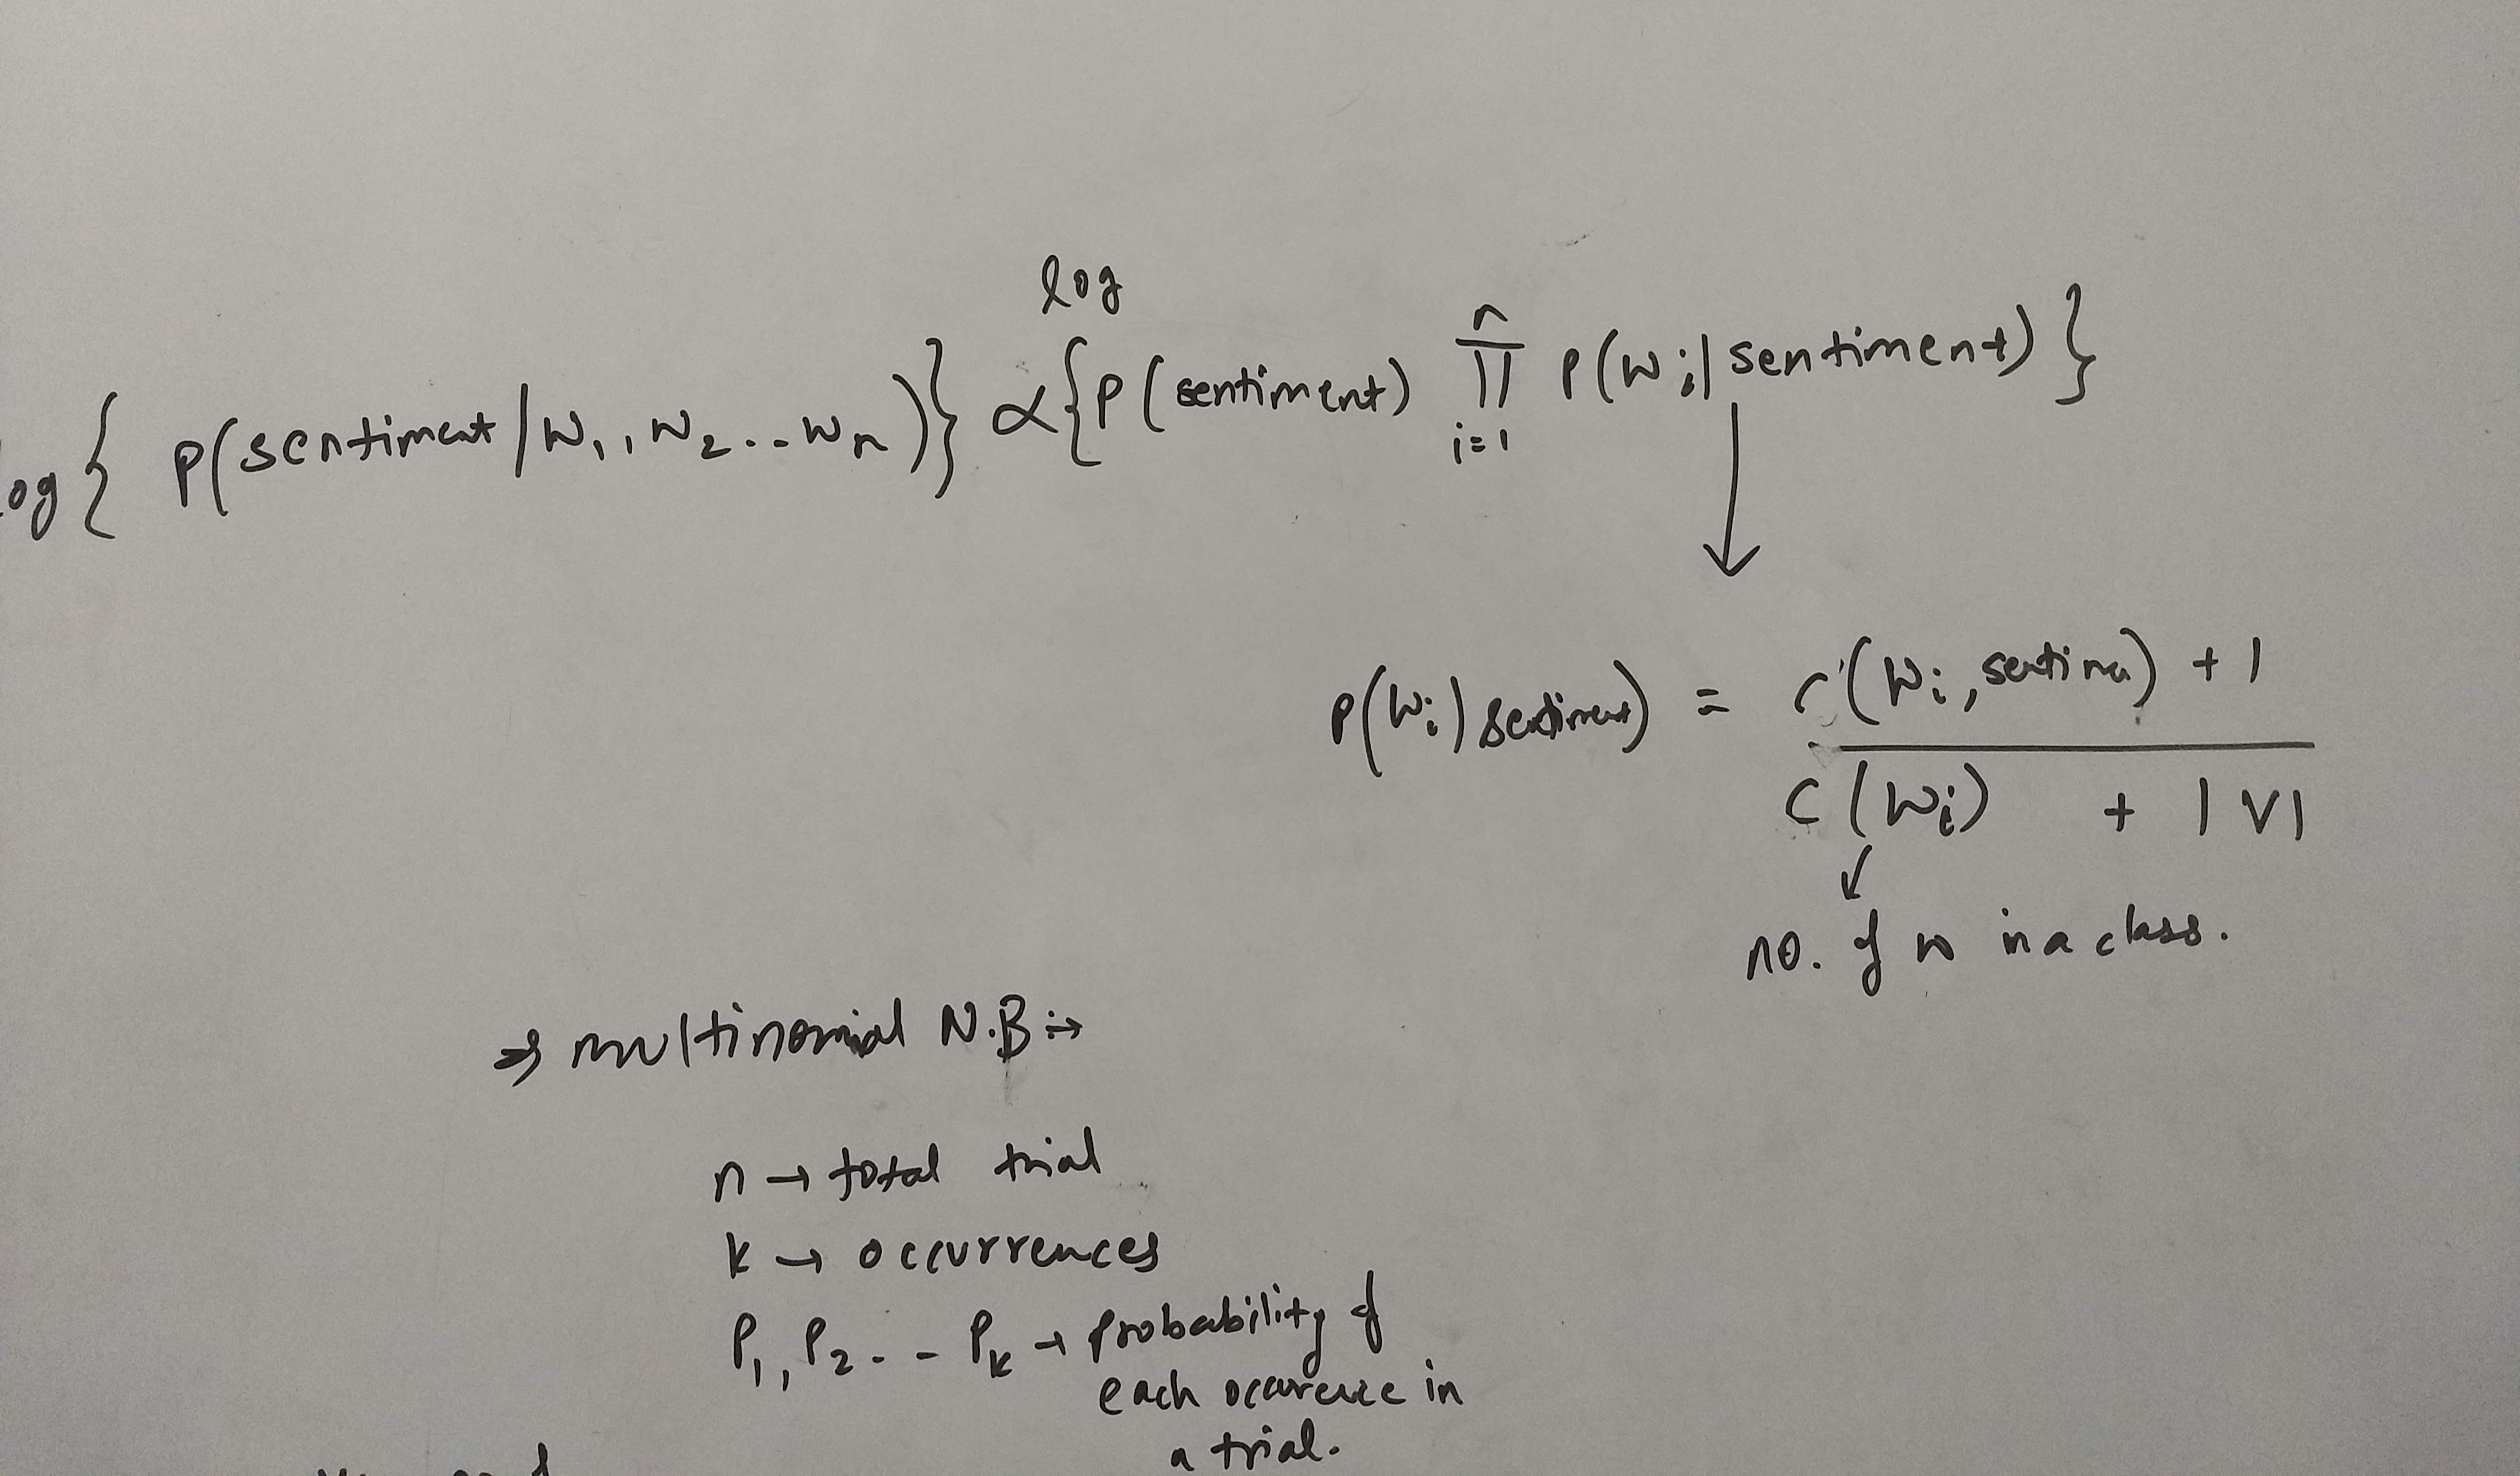 log
log { P(sentiment/w₁, w₂...wₙ)} ∝ {P(sentiment) ∏ᵢ₌₁ⁿ P(wᵢ|sentiment)}
↓
P(wᵢ|sentiment) = C(wᵢ, sentime) + 1
C(wᵢ) + |V|
↙
no. of w in a class.
⇒ multinomial N.B :→
n → total trial
k → occurrences
P₁, P₂.. - Pₖ → probability of
each occurence in
a trial.